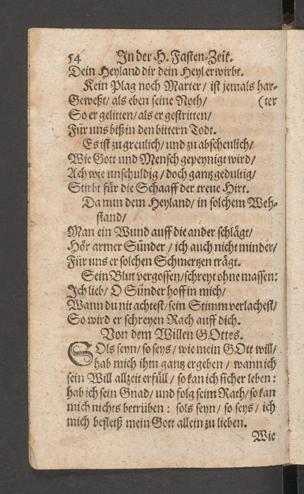 54 In der H. Fasten-Zeit.
Dein Heyland dir dein Heyl erwirbt.
Kein Plag noch Marter/ ist jemals har-
Geweßt/ als eben seine Noth/ (ter
So er gelitten/ als er gestritten/
Für uns biß in den bittern Todt.
Es ist zu greulich/ und zu abscheulich/
Wie Gott und Mensch gepeynigt wird/
Ach wie unschuldig/ doch gantz gedultig/
Stirbt für die Schaaff der treue Hirt.
Da nun dem Heyland/ in solchem Weh-
stand/
Man ein Wund auff die ander schlägt/
Hör armer Sünder/ ich auch nicht minder/
Für uns er solchen Schmertzen trägt.
Sein Blut vergossen/ schreyt ohne massen:
Ich lieb/ O Sünder hoff in mich/
Wann du nit achtest/ sein Stimm verlachest/
So wird er schreyen Rach auff dich.
Von dem Willen GOttes.
SOls seyn/ so seys/ wie mein GOtt will/
hab mich ihm gantz ergeben/ wann ich
sein Will allzeit erfüll/ so kan ich sicher leben:
hab ich sein Gnad/ und folg seim Rath/ so kan
mich nichts betrüben: sols seyn/ so seys/ ich
mich befleiß mein Gott allein zu lieben.
Wie